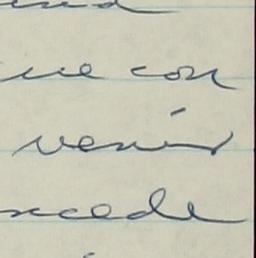 ue con
venir
xcede